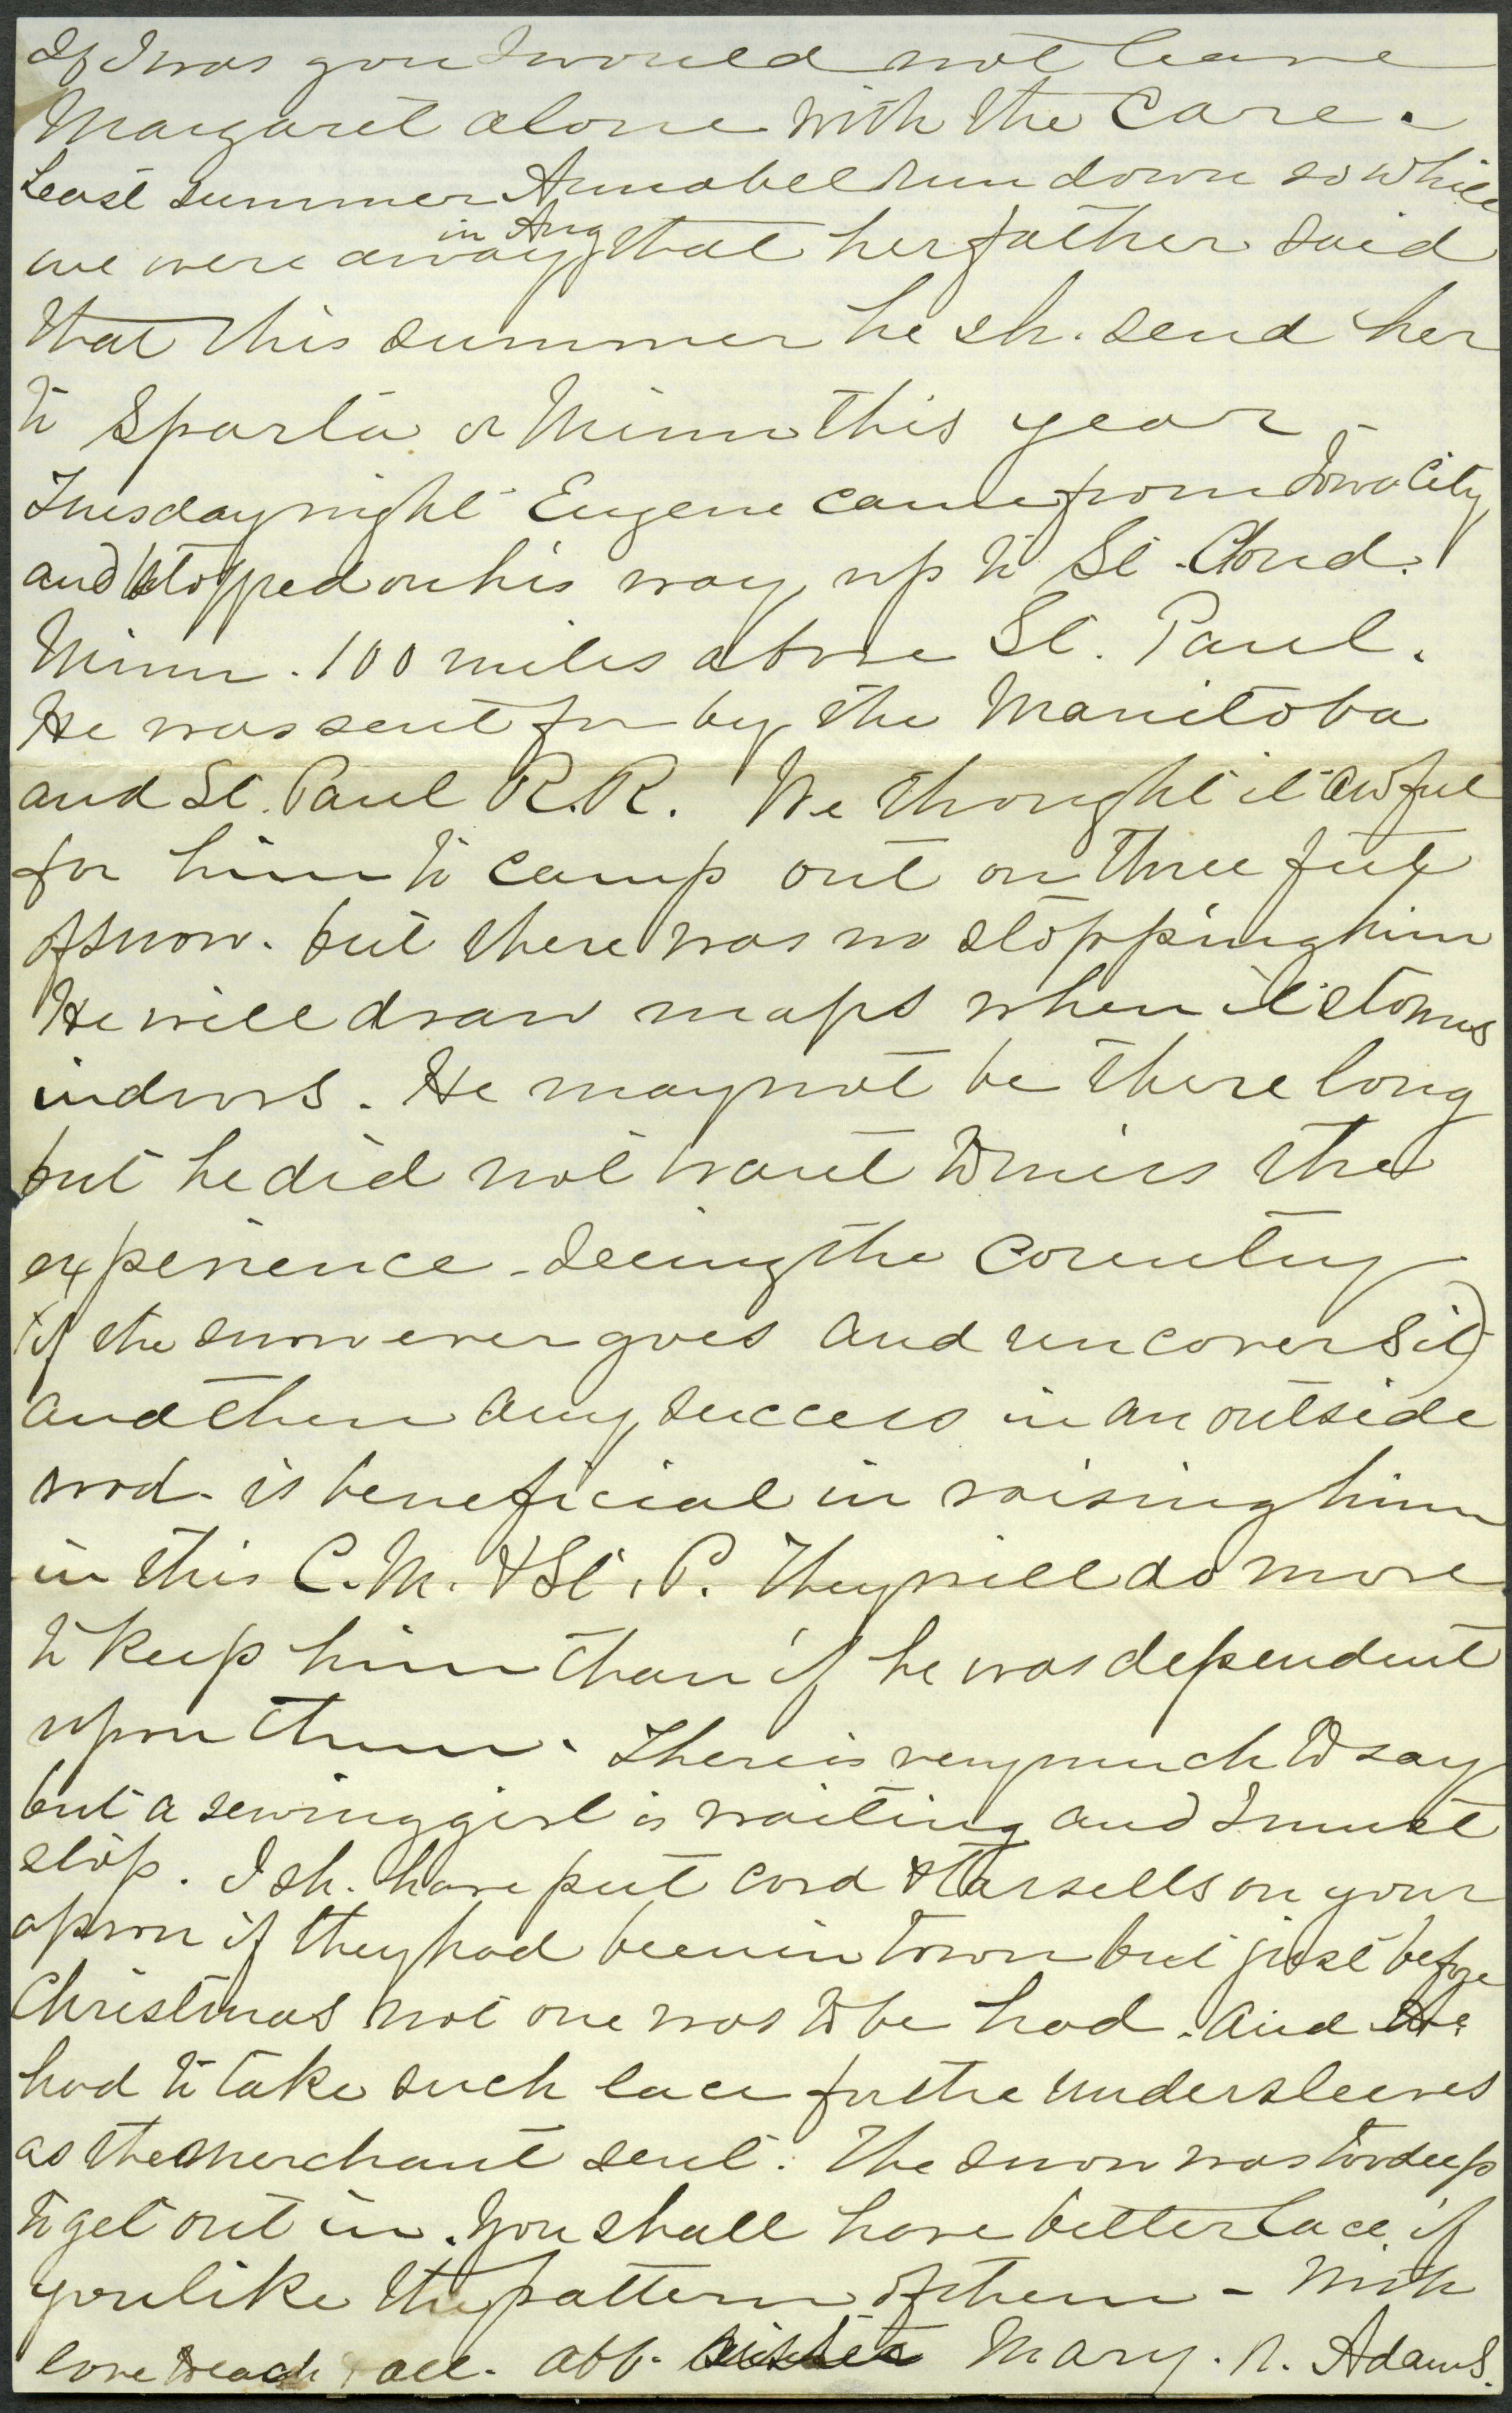 If I was you I would not leave
Margaret alone with the care.
Last summer Annabel run down so while
we were away in Aug that her father said
that this summer he sh. send her
to Sparta or Minn this year.
Tuesday night Eugene came from Iowa City
and stopped on his way up to St. Cloud.
Minn. 100 miles above St. Paul.
He was sent for by the Manitoba
and St. Paul R.R. We thought it awful
for him to camp out on three feet
of snow. but there was no stopping him
He will draw maps when it storms
indoors. He may not be there long
but he did not want to miss the
experience - seeing the country
(if the snow ever goes and uncovers it)
and then any success in an outside
road - is beneficial in raising him
in this C. M. & St. P. They will do more
to keep him than if he was dependent
upon them. There is very much to say
but a sewing girl is waiting and I must
stop. I sh. have put cord & tarsells on your
apron if they had been in town but just before
Christmas not one was to be had. and we
had to take such lace for the undersleeves
as the merchant sent. The snow was too deep
to get out in. You shall have better lace if
you like the pattern of them - With
love to each & all. aff. sister Mary. N. Adams.